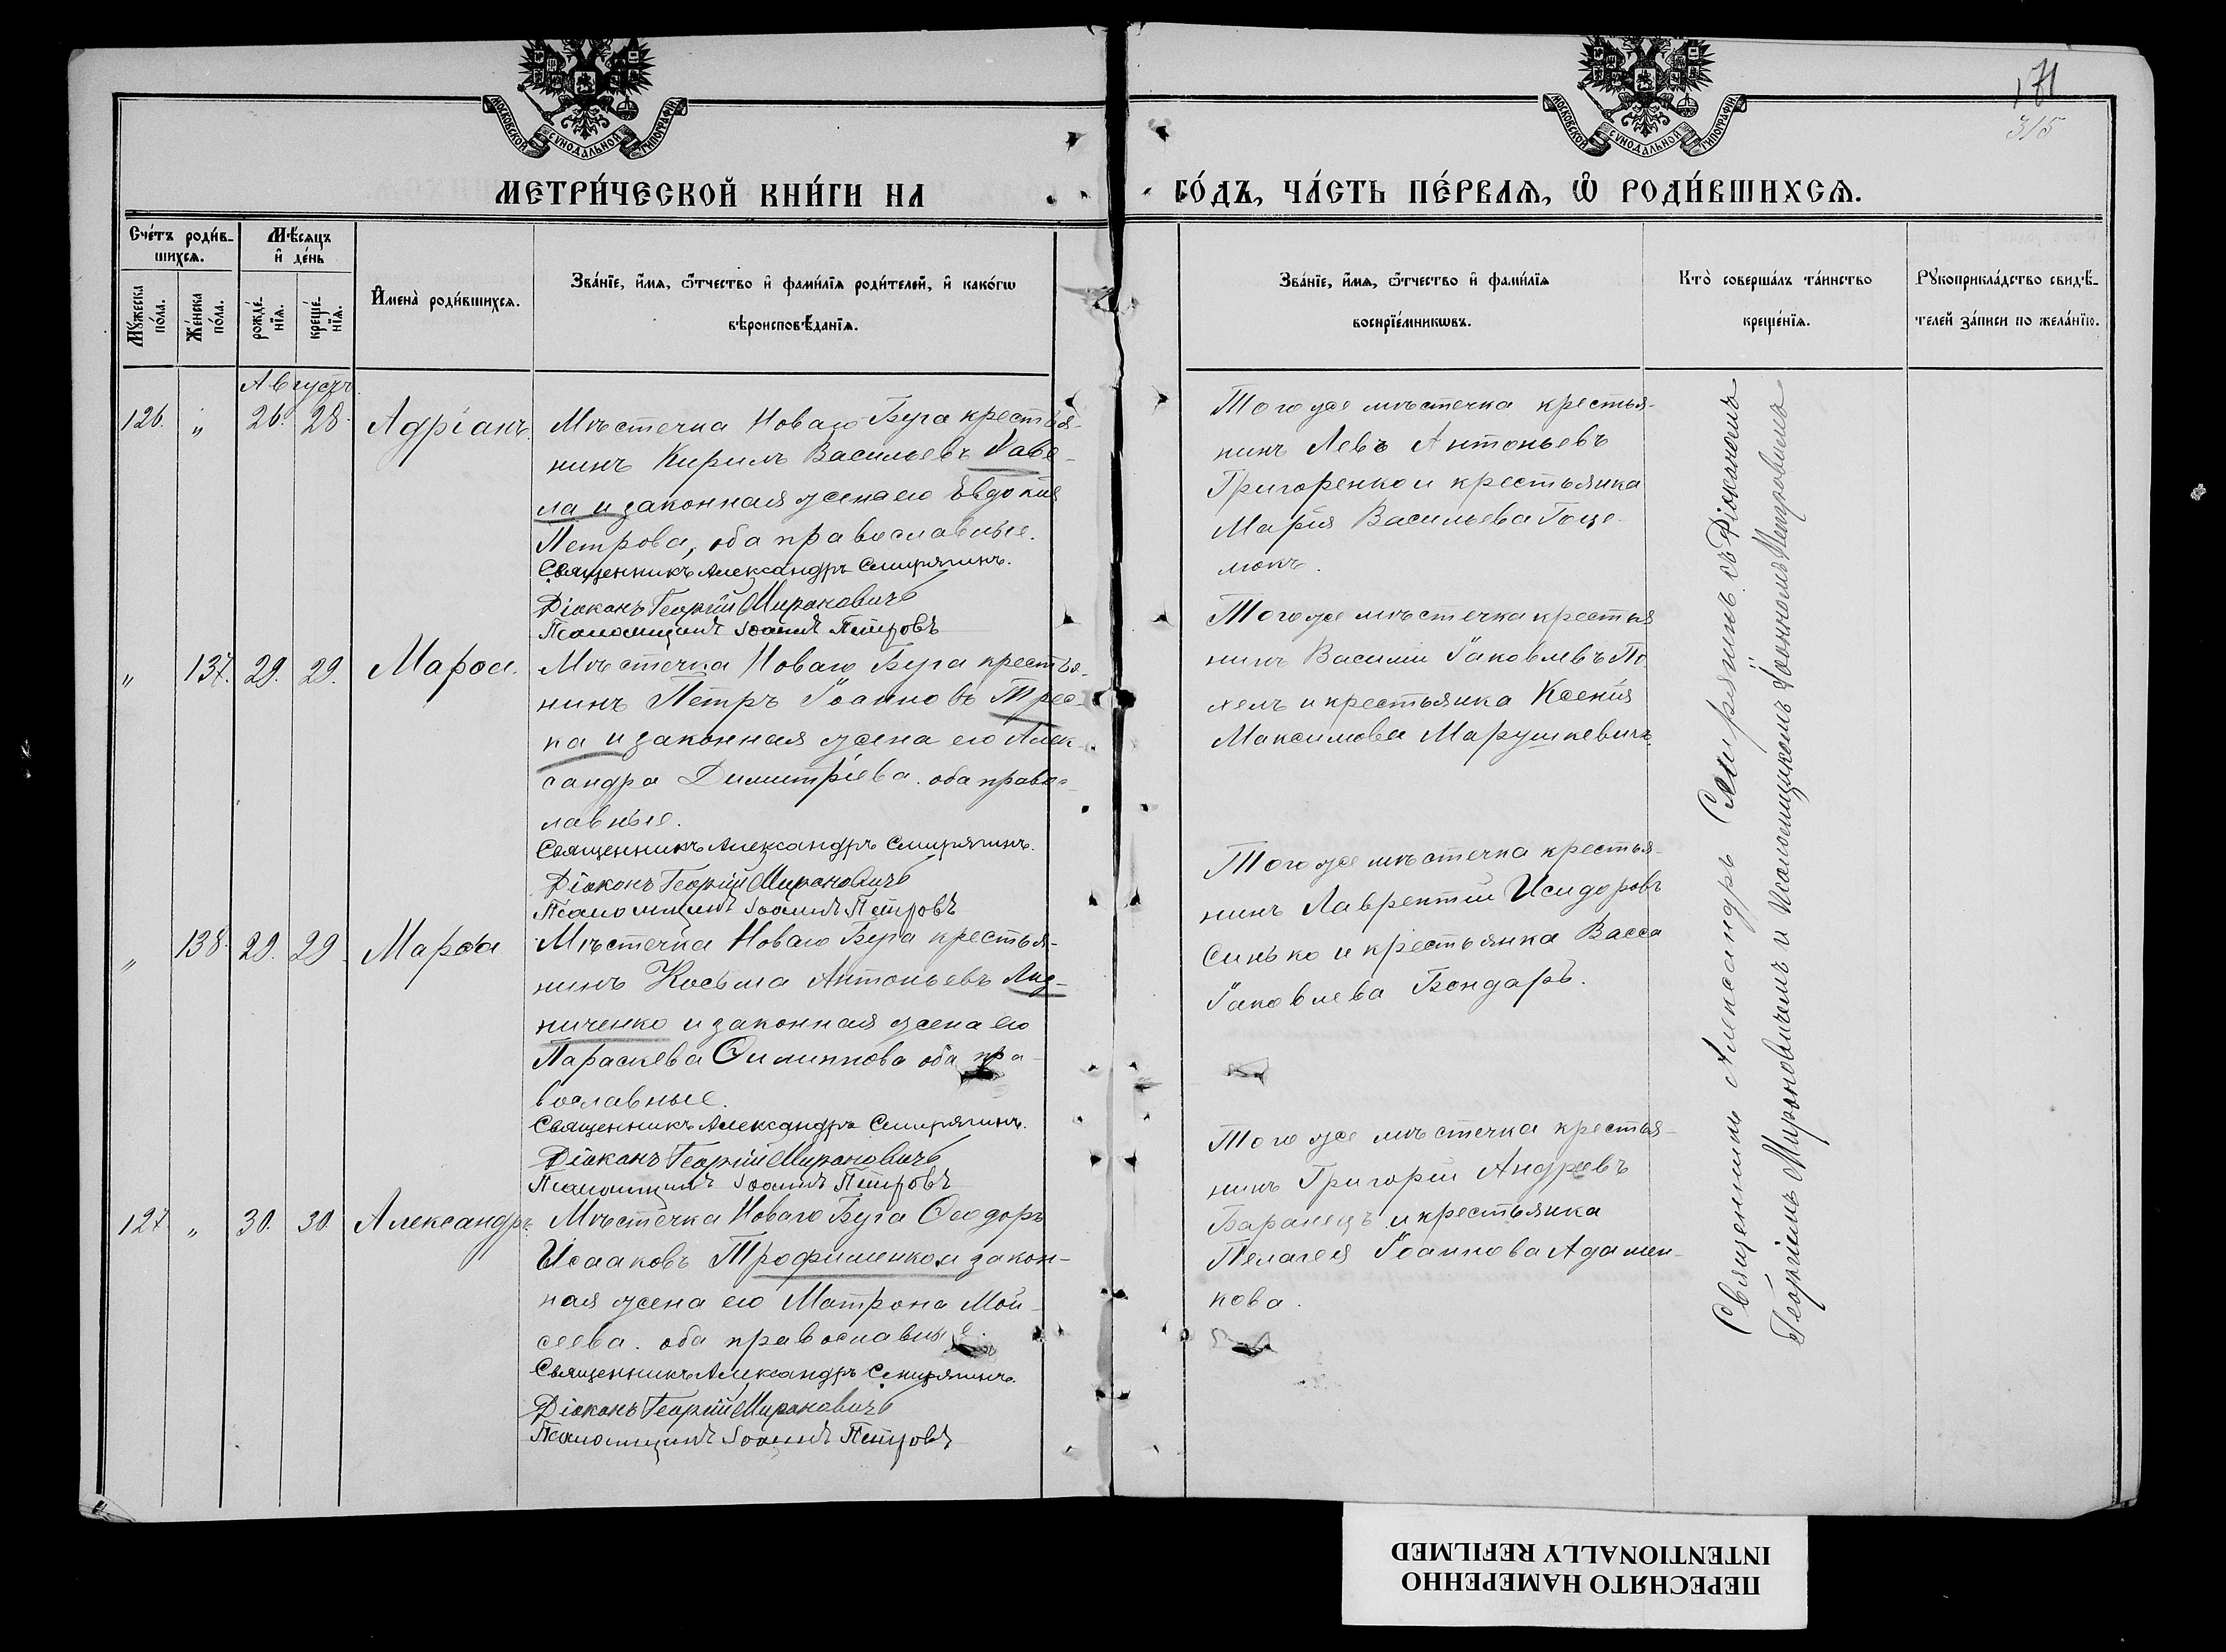 171
315
МОСКОВСКОЙ СѴНОДАЛЬНОЙ ТИПОГРАФІИ
МОСКОВСКОЙ СѴНОДАЛЬНОЙ ТИПОГРАФІИ
МЕТРИ́ЧЕСКОЙ КНИ́ГИ НА ГО́ДЪ, ЧА́СТЬ ПЕ́РВАѦ, Ѡ҆ РОДИ́ВШИХСѦ.
Сче́тъ роди́в-
шихсѧ.
Мꙋ́жеска по́ла.
Же́нска по́ла.
Мѣ́сяцъ
и҆ де́нь
рожде́-
нїѧ.
креще́-
нїѧ.
И҆мена̀ роди́вшихсѧ.
Зва́нїе, и҆́мѧ, ѻ҆́тчество и҆ фами́лїѧ роди́телей, и҆ како́гѡ
вѣроисповѣ́данїѧ.
Зва́нїе, и҆́мѧ, ѻ҆́тчество и҆ фами́лїѧ
воспрїе́мникѡвъ.
Кто̀ соверша́лъ та́инство
креще́нїѧ.
Рꙋкоприкла́дство свидѣ́-
телей за́писи по жела́нїю.
Августъ
126. „ 26. 28. Адріанъ.
Мѣстечка Новаго Буга крестья-
нинъ Кирилъ Васильевъ Хаве-
ла и законная жена его Евдокія
Петрова, оба православные.
Священникъ Александръ Смирягинъ.
Діаконъ Георгій Мироновичъ
Псаломщикъ Іоаннъ Петровъ
Того же мѣстечка крестья-
нинъ Левъ Антоньевъ
Григоренко и крестьянка
Марія Васильева Гоце-
люкъ.
„ 137. 29. 29. Марѳа.
Мѣстечка Новаго Буга крестья-
нинъ Петръ Іоанновъ Трес-
ка и законная жена его Алек-
сандра Димитріева. оба правос-
лавные.
Священникъ Александръ Смирягинъ.
Діаконъ Георгій Мироновичъ
Псаломщикъ Іоаннъ Петровъ
Того же мѣстечка крестья
нинъ Василій Іаковлевъ По
хелъ и крестьянка Ксенія
Максимова Марушкевичъ.
„ 138. 29. 29 Марѳа
Мѣстечка Новаго Буга крестья-
нинъ Косьма Антоньевъ
ниченко и законная жена его
Параскева Филиппова оба пра-
вославные.
Священникъ Александръ Смирягинъ.
Діаконъ Георгій Мироновичъ
Псаломщикъ Іоаннъ Петровъ
Того же мѣстечка крестья-
нинъ Лаврентій Исидоровъ
Синько и крестьянка Васса
Іаковлева Бондаръ.
127 „ 30. 30 Александръ.
Мѣстечка Новаго Буга Ѳеодоръ
Исааковъ Трофименко и закон-
ная жена его Матрона Мои-
сеева. оба православные.
Священникъ Александръ Смирягинъ.
Діаконъ Георгій Мироновичъ
Псаломщикъ Іоаннъ Петровъ
Того же мѣстечка крестья-
нинъ Григорій Андреевъ
Баранецъ и крестьянка
Пелагея Іоаннова Адамен-
кова.
Священникъ Александръ Смирягинъ съ Діакономъ
Георгіемъ Мироновичемъ и Псаломщикомъ Іоанномъ Петровымъ
ПЕРЕСНЯТО НАМЕРЕННО
INTENTIONALLY REFILMED